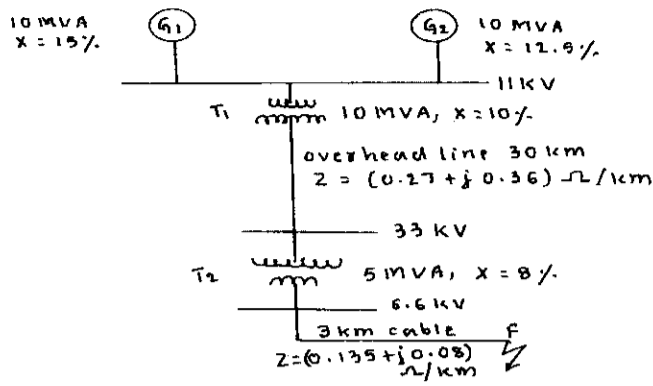 10 MVA
X = 15%
G1
G2
10 MVA
X = 12.5%
11 KV
T1
10 MVA, X = 10%
overhead line 30 km
Z = (0.27 + j 0.36) Ω/km
33 KV
T2
5 MVA, X = 8%
6.6 KV
3 km cable
F
Z = (0.135 + j 0.08)
Ω/km